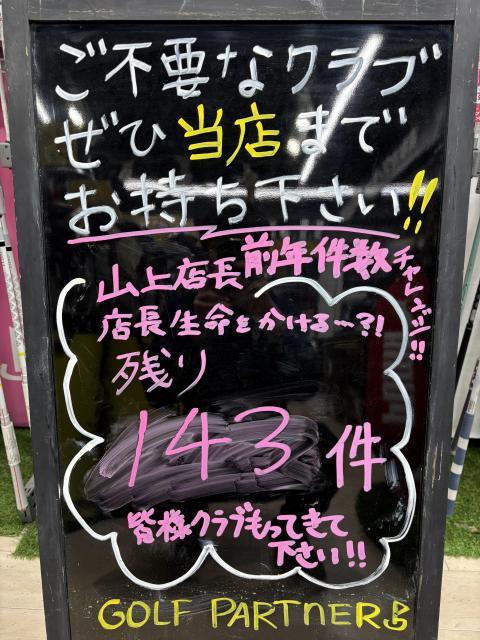 ご不要なクラブ
ぜひ当店まで
お持ち下さい!!
山上店長 前年件数チャレンジ!!
店長生命をかける…?!
残り
143件
皆様クラブもってきて
下さい!!
GOLF PARTNER